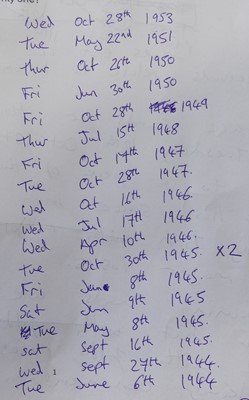 my one?
Wed Oct 28th 1953
Tue May 22nd 1951
Thur Oct 26th 1950
Fri Jun 30th 1950
Fri Oct 28th 1949
Thur Jul 15th 1948
Fri Oct 17th 1947
Tue Oct 28th 1947.
Wed Oct 16th 1946.
Wed Jul 17th 1946
Wed Apr 10th 1946.
Tue Oct 30th 1945. x2
Fri June 8th 1945.
Sat Jun 9th 1945
Tue May 8th 1945.
Sat Sept 16th 1945.
Wed : Sept 27th 1944.
Tue June 6th 1944